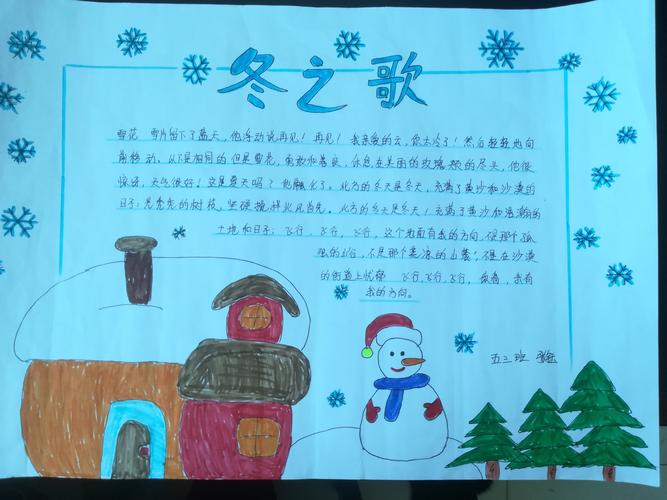 冬之歌
雪花 雪片留下了蓝天，他浮动说再见！再见！我亲爱的云，你太冷了！然后轻轻地向
前移动。从下是相同的但是雪花，和善良，休息在美丽的玫瑰颊的尽头，他很
惊讶，天气很好！这是夏天吗？他融化了。北方的冬天是冬天，充满了黄沙和沙漠的
日子；光秃秃的树枝，坚硬抵挡北风首先。北方的冬天是冬天！充满了黄沙和浩瀚的
土地和日子；飞行，飞行，飞行，这个地面有我的方向。不是那个孤
独的山谷，不是那个荒凉的山麓，不是在沙漠
的街道上忧郁 飞行，飞行，飞行，你看，我有
我的方向。
五二班